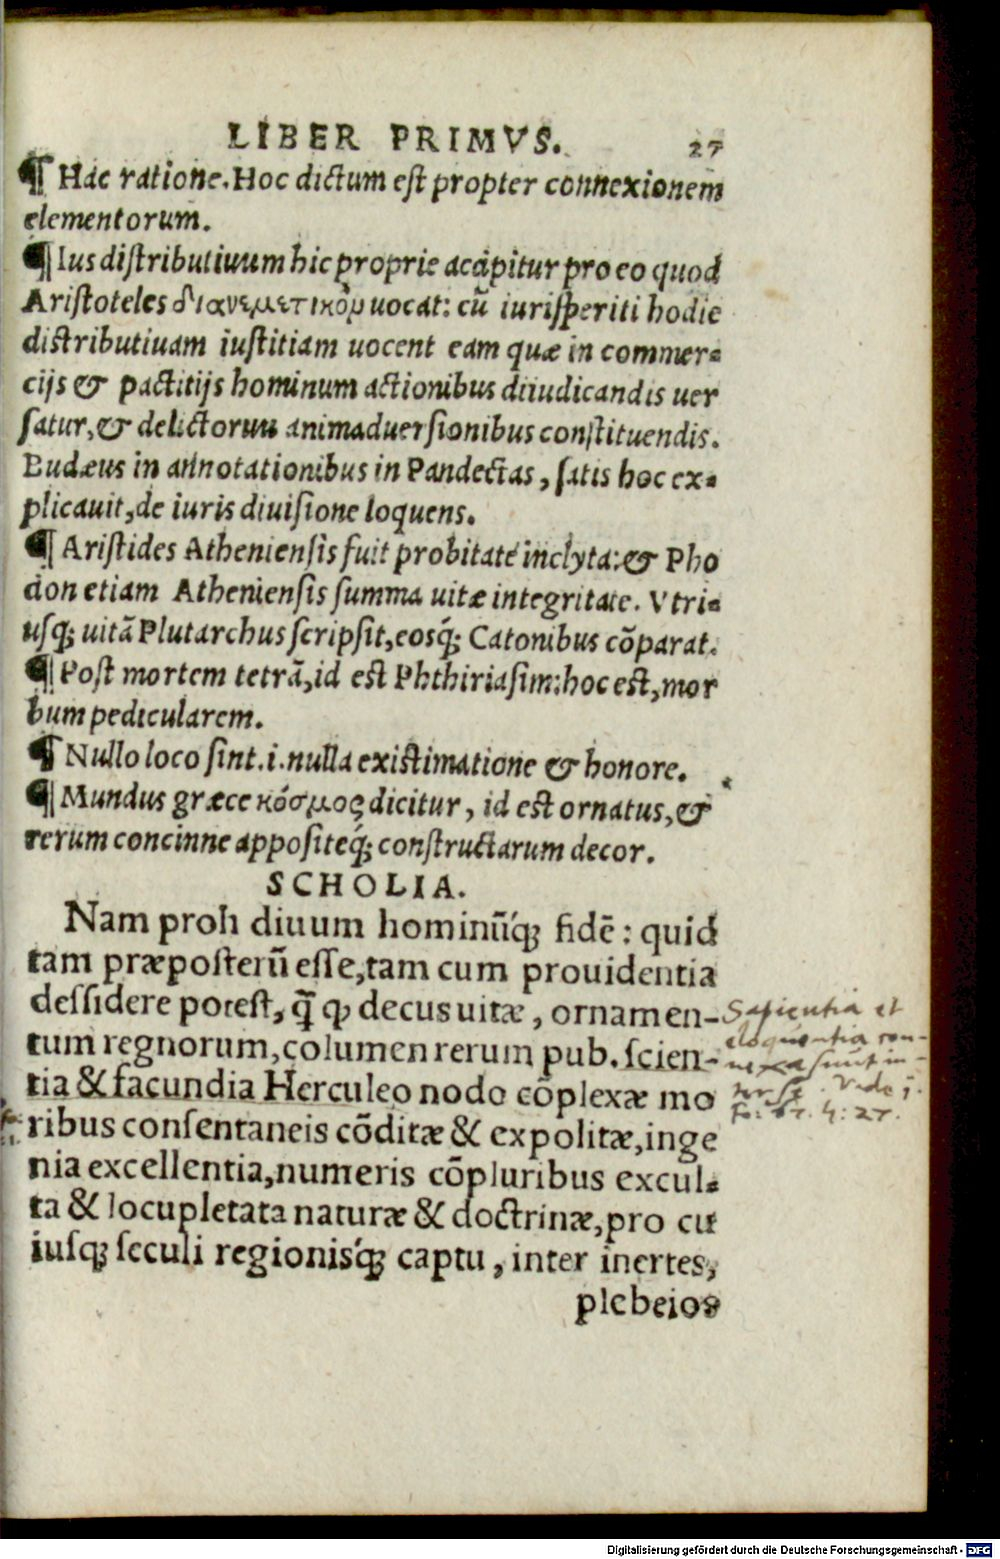 LIBER PRIMVS. 27
¶ Hac ratione. Hoc dictum est propter connexionem
elementorum.
¶ Ius distributiuum hic proprie accipitur pro eo quod
Aristoteles διανεμετικὸμ uocat: cũ iurisperiti hodie
distributiuam iustitiam uocent eam quæ in commer=
cijs & pactitijs hominum actionibus diiudicandis uer
satur, & delictorum animaduersionibus constituendis.
Budæus in annotationibus in Pandectas, satis hoc ex=
plicauit, de iuris diuisione loquens.
¶ Aristides Atheniensis fuit probitate inclyta: & Pho
cion etiam Atheniensis summa uitæ integritate. Vtri=
usq; uitã Plutarchus scripsit, eosq́; Catonibus cõparat.
¶ Post mortem tetrã, id est Phthiriasim: hoc est, mor
bum pedicularem.
¶ Nullo loco sint .i. nulla existimatione & honore.
¶ Mundus græce κόσμος dicitur, id est ornatus, &
rerum concinne appositeq́; constructarum decor.
SCHOLIA.
Nam proh diuum hominũq́; fidẽ: quid
tam præposterũ esse, tam cum prouidentia
dessidere potest, q̃ ꝙ decus uitæ, ornamen-
tum regnorum, columen rerum pub. scien-
tia & facundia Herculeo nodo cõplexæ mo
ribus consentaneis cõditæ & expolitæ, inge
nia excellentia, numeris cõpluribus excul=
ta & locupletata naturæ & doctrinæ, pro cu
iusq; seculi regionisq́; captu, inter inertes,
plebeios
Sapientia et
eloquentia con-
nexa sunt in-
ter se. Vide
4: 27.
Digitalisierung gefördert durch die Deutsche Forschungsgemeinschaft - DFG